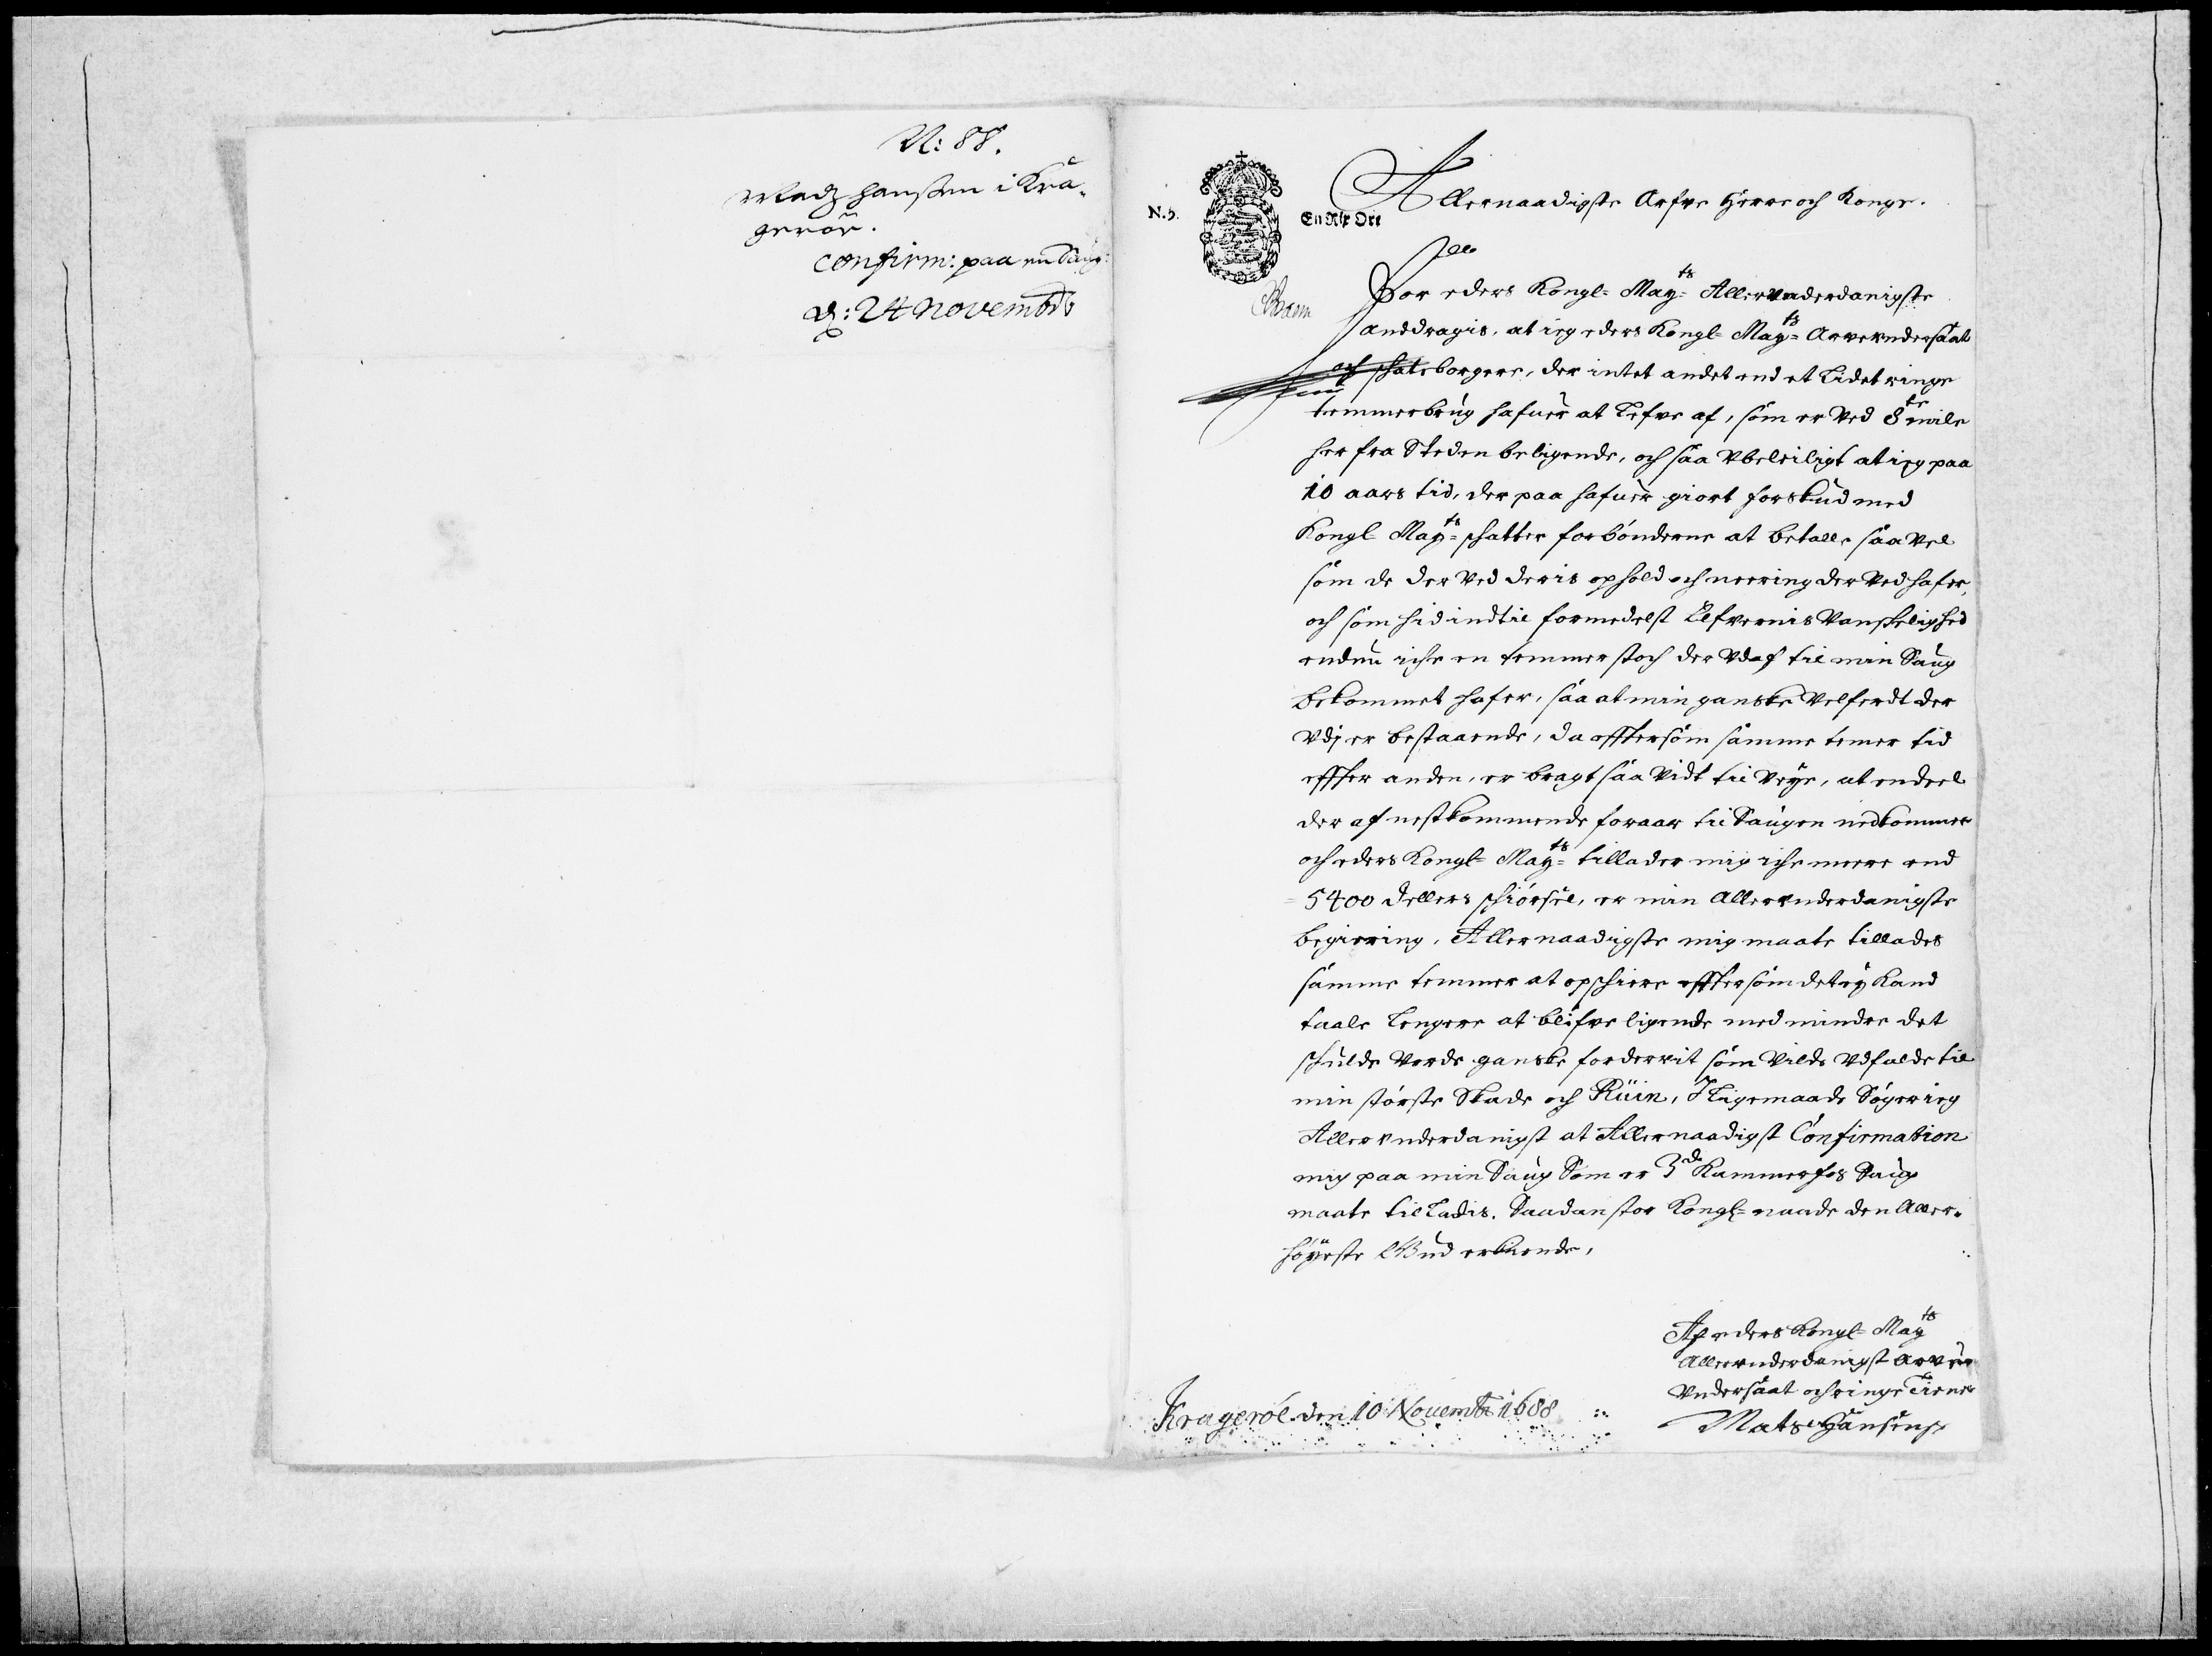 N: 88.
Madz Hansen i Kra-
gerøe.
confirm: paa en Saug:
d: 24 Novembr
N.5.
En Rix Ort
Allernaadigste Arfve Herre och Konge.
For eders Kongl= May=ts Allervnderdanigste
anddragis, at ieg eders Kongl= May=ts Arvevndersaat
och schatteborgere, der intet andet end et Lidet ringe
temmerbrug hafuer at Lefve af, som er ved 8te mile
her fra Steden beligende, och saa vbeleiligt at ieg paa
10 aars tid, der paa hafuer giort forskud med
Kongl= May=ts schatter for bønderne at betalle saa vel
som de der ved deris ophold och neering der ved hafer,
och som hid indtil formedelst Elfvernis vanskelighed
endnu iche en temmer stoch der vdaf til min Saug
bekommet hafer, saa at min ganske velferdt der
vdj er bestaaende, da efftersom samme temer tid
effter anden, er bragt saa vidt til veye, at endeel
der af nestkommende foraar til Saugen nedkommer
och eders Kongl= May=ts tillader mig iche meere end
5400 dellers schiørsel, er min allervnderdanigste
begiering, Allernaadigste mig maate tillades
samme temmer at opschiere efftersom det ey kand
taale Lengere at blifve ligende med mindre det
schulde verde ganske forderwit som vilde vdfalde til
min største Skade och Ruin, I Ligemaade Søger ieg
Allervnderdanigst at Allernaadigst Confirmation
mig paa min Saug Som er 3de Kammerfos Saug
maate til Ladis. Saadan stor Kongl= naade den Aller-
høyeste Gud erkiende,
Af eders Kongl= Mayts
Allervnderdanigst arve
vndersaat och ringe Tiener
Mats Hansen
Kragerøe den 10 Nouembr 1688